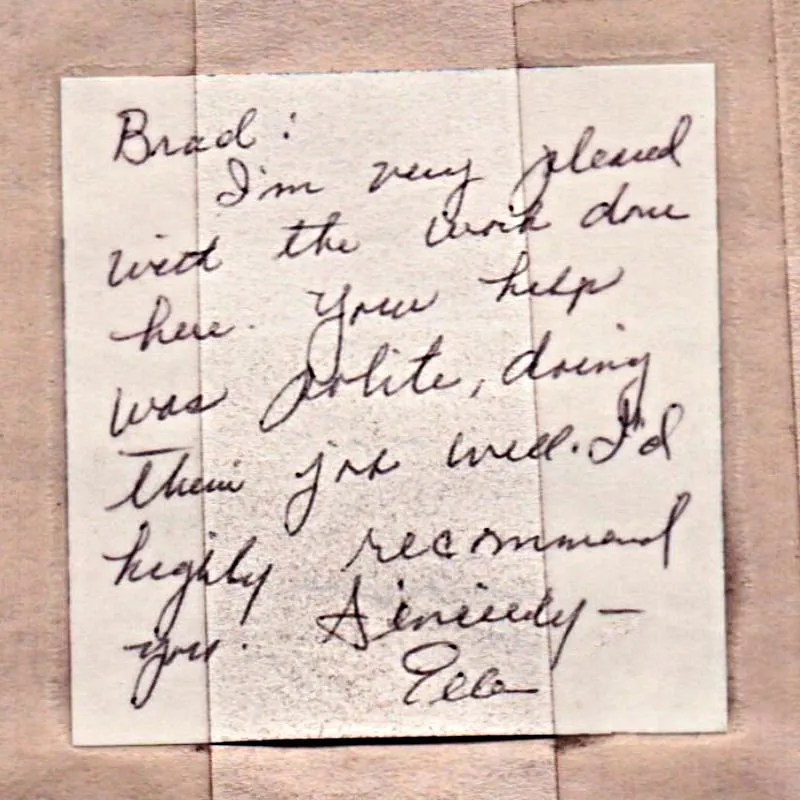 Brad:
I'm very pleased
with the work done
here. Your help
was polite, doing
their job well. I'd
highly recommend
you. Sincerely—
Ella